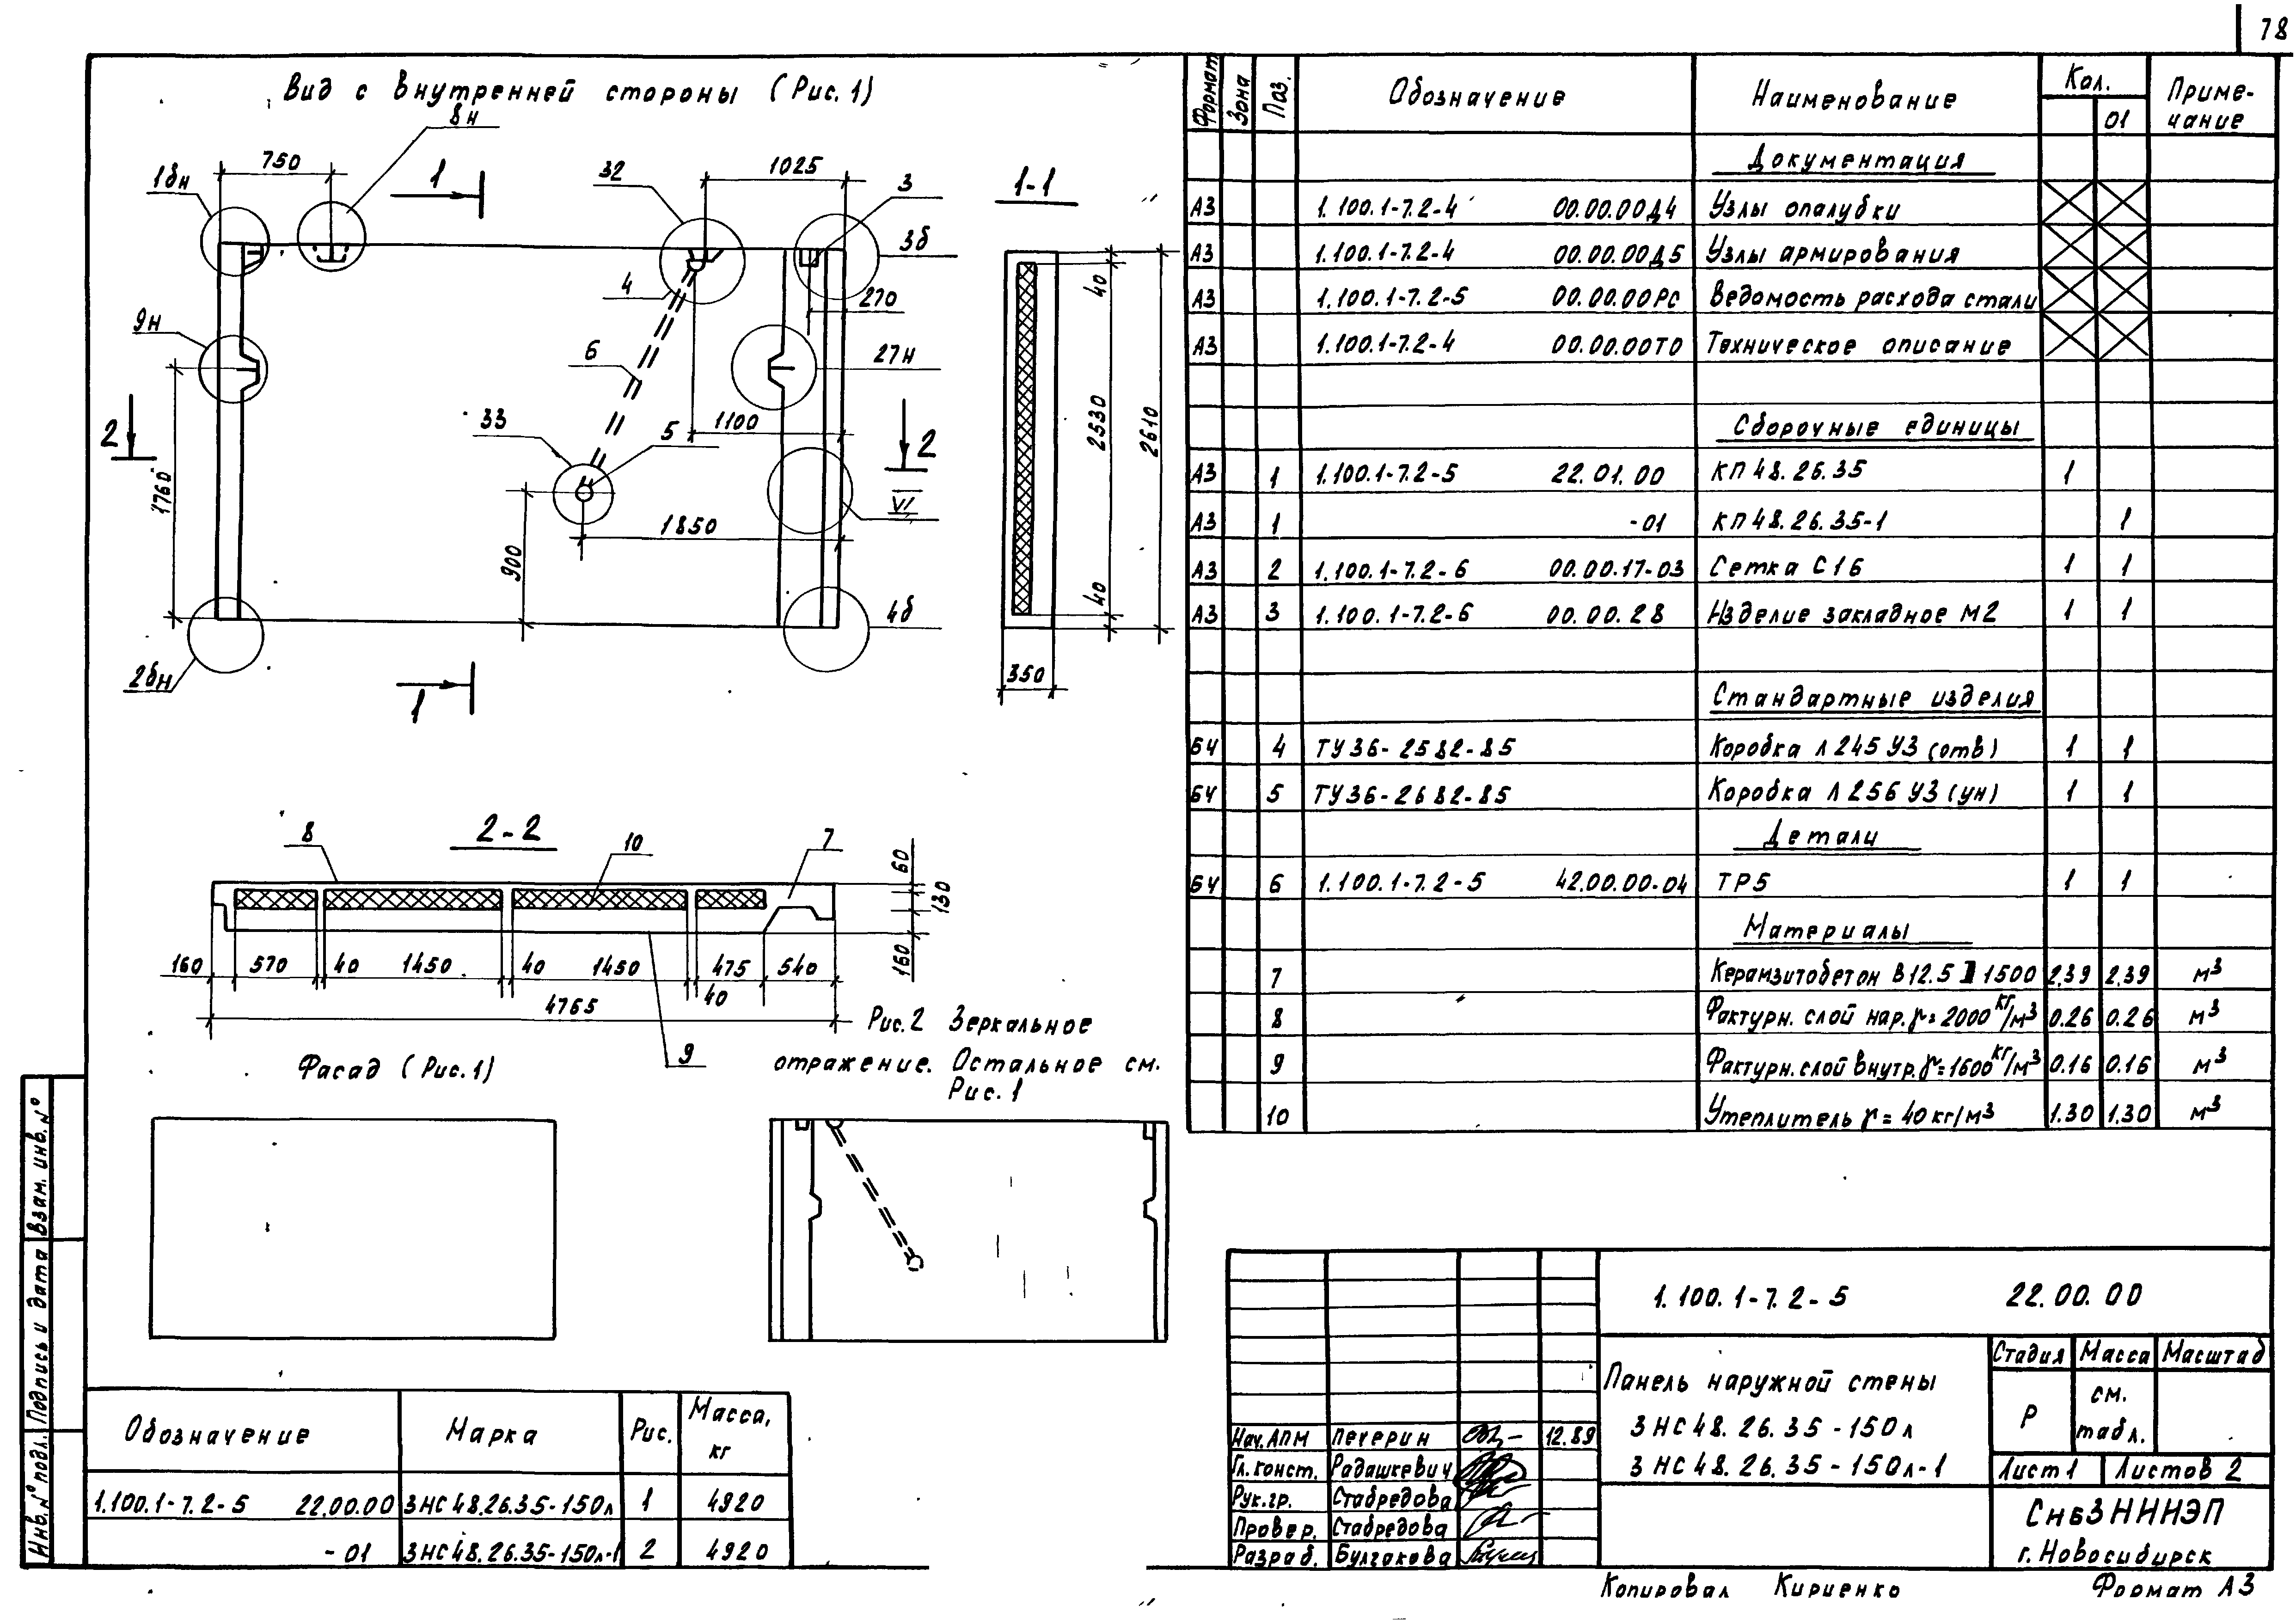 78
Вид с внутренней стороны (Рис. 1)
8н
750
1бн
1
32
1025
3
1-1
3б
4
270
40
9н
6
27н
33
5
1100
2
2
2530
2610
1760
VI
1850
900
40
4б
2бн
1
350
2-2
8
10
7
60
130
160
160 570 40 1450 40 1450 475 540
40
4765
9
Рис. 2 Зеркальное
отражение. Остальное см.
Рис. 1
Фасад (Рис. 1)
Формат Зона Поз. Обозначение Наименование Кол. Приме-
01 чание
Документация
А3 1.100.1-7.2-4 00.00.00Д4 Узлы опалубки
А3 1.100.1-7.2-4 00.00.00Д5 Узлы армирования
А3 1.100.1-7.2-5 00.00.00РС Ведомость расхода стали
А3 1.100.1-7.2-4 00.00.00ТО Техническое описание
Сборочные единицы
А3 1 1.100.1-7.2-5 22.01.00 КП 48.26.35 1
А3 1 -01 КП 48.26.35-1 1
А3 2 1.100.1-7.2-6 00.00.17-03 Сетка С16 1 1
А3 3 1.100.1-7.2-6 00.00.28 Изделие закладное М2 1 1
Стандартные изделия
БЧ 4 ТУ36-2582-85 Коробка Л245 У3 (отв) 1 1
БЧ 5 ТУ36-2682-85 Коробка Л256 У3 (ун) 1 1
Детали
БЧ 6 1.100.1-7.2-5 42.00.00-04 ТР5 1 1
Материалы
7 Керамзитобетон В12.5 Д 1500 2.39 2.39 м³
8 Фактурн. слой нар. γ=2000 кг/м³ 0.26 0.26 м³
9 Фактурн. слой внутр. γ=1600 кг/м³ 0.16 0.16 м³
10 Утеплитель γ = 40 кг/м³ 1.30 1.30 м³
Обозначение Марка Рис. Масса, кг
1.100.1-7.2-5 22.00.00 3НС48.26.35-150л 1 4920
-01 3НС48.26.35-150л-1 2 4920
Инв. № подл. Подпись и дата Взам. инв. №
1.100.1-7.2-5 22.00.00
Панель наружной стены
3НС48.26.35-150л
3НС48.26.35-150л-1
Стадия Масса Масштаб
Р см. табл.
Лист 1 Листов 2
СибЗНИИЭП
г. Новосибирск
Нач. АПМ Печерин 12.89
Гл. конст. Радашкевич
Рук. гр. Стабредова
Провер. Стабредова
Разраб. Булгакова
Копировал Кириенко Формат А3